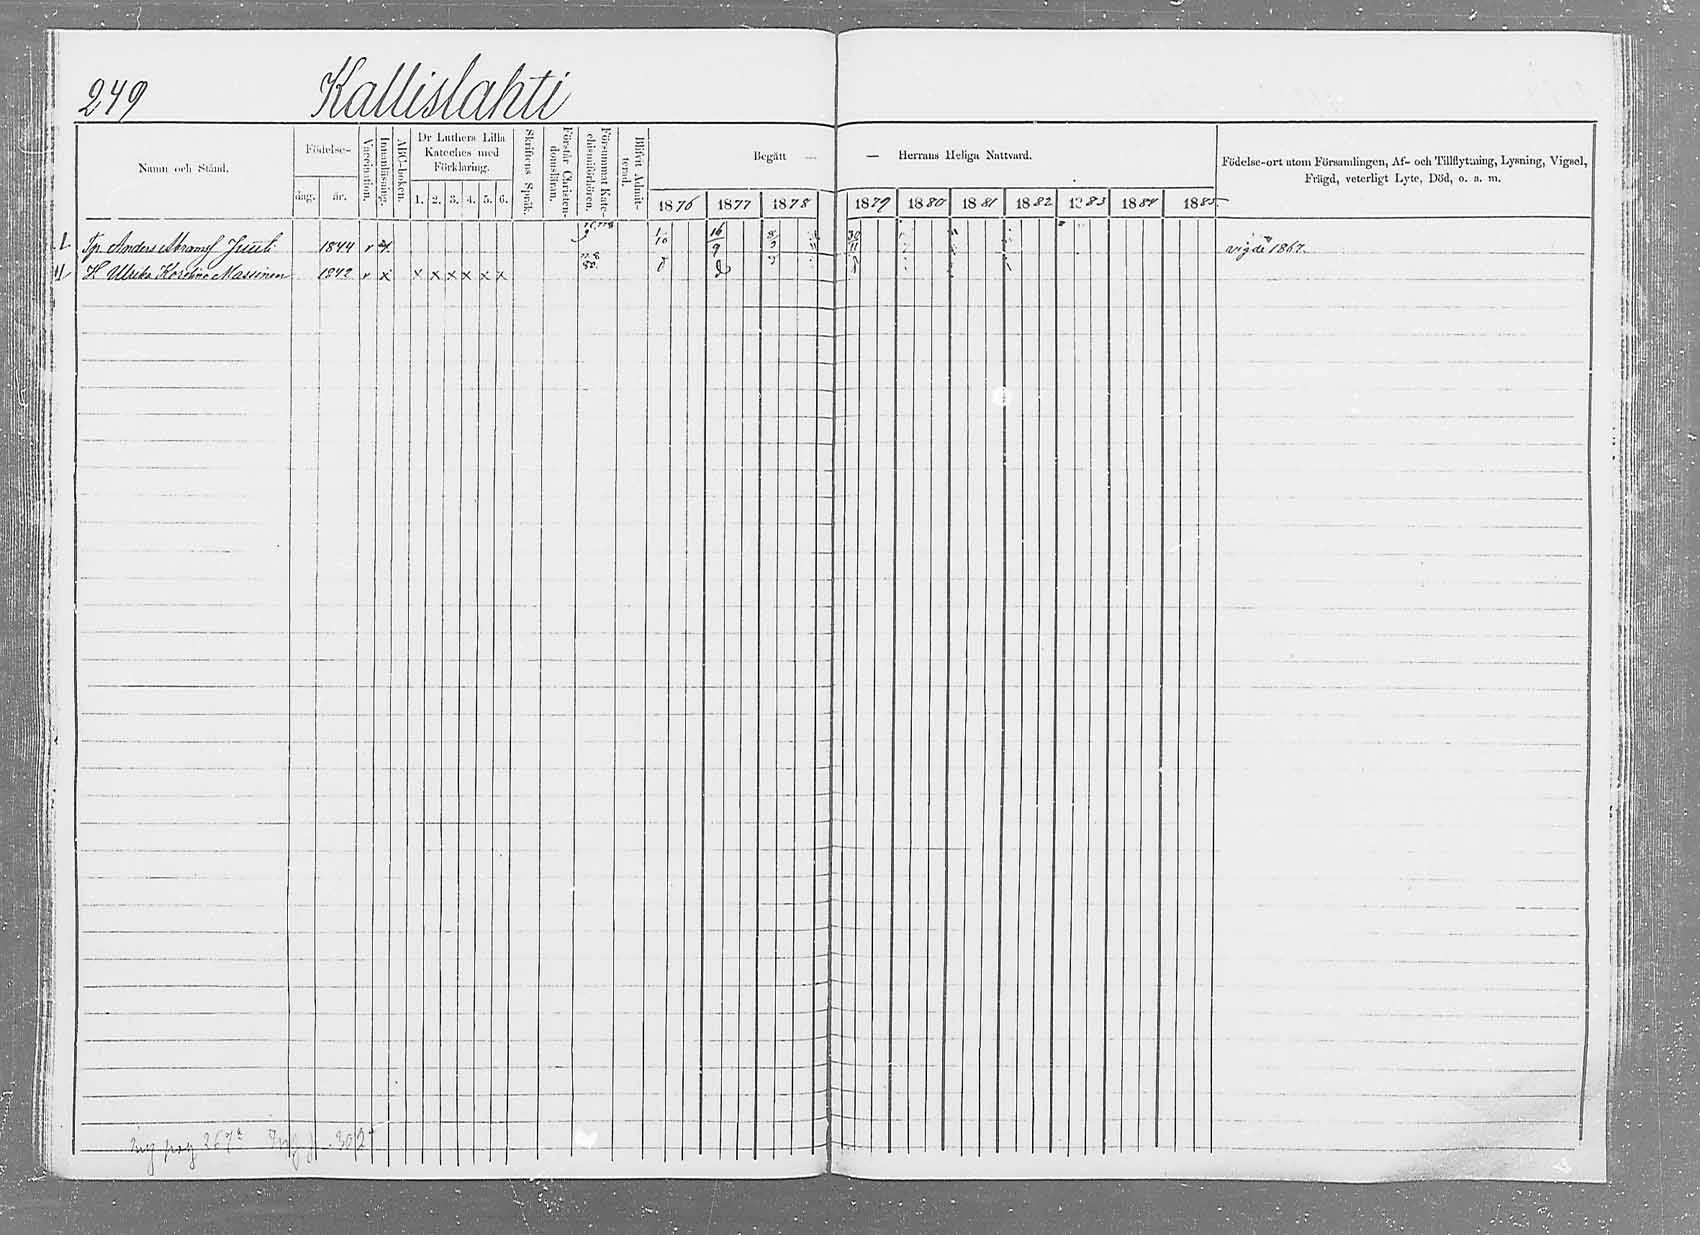 249 Kallislahti
Namn och Stånd.
Födelse-
dag. år.
Vaccination.
Innanläsning.
ABC-boken.
Dr Luthers Lilla
Kateches med
Förklaring.
1. 2. 3. 4. 5. 6.
Skriftens Språk.
Förstår Christen-
domsläran.
Försummat Kate-
chismiförhören.
Blifvit Admit-
terad.
Begått — — Herrans Heliga Nattvard.
1876 1877 1878 1879 1880 1881 1882 1883 1884 1885
Födelse-ort utom Församlingen, Af- och Tillflyttning, Lysning, Vigsel,
Frägd, veterligt Lyte, Död, o. a. m.
Tp. Anders Abramsf Juuti 1844 v x 1/10 16/9 30/11 vigde 1867.
H. Ulrika Karolina Massinen 1842 v x x x x x x x